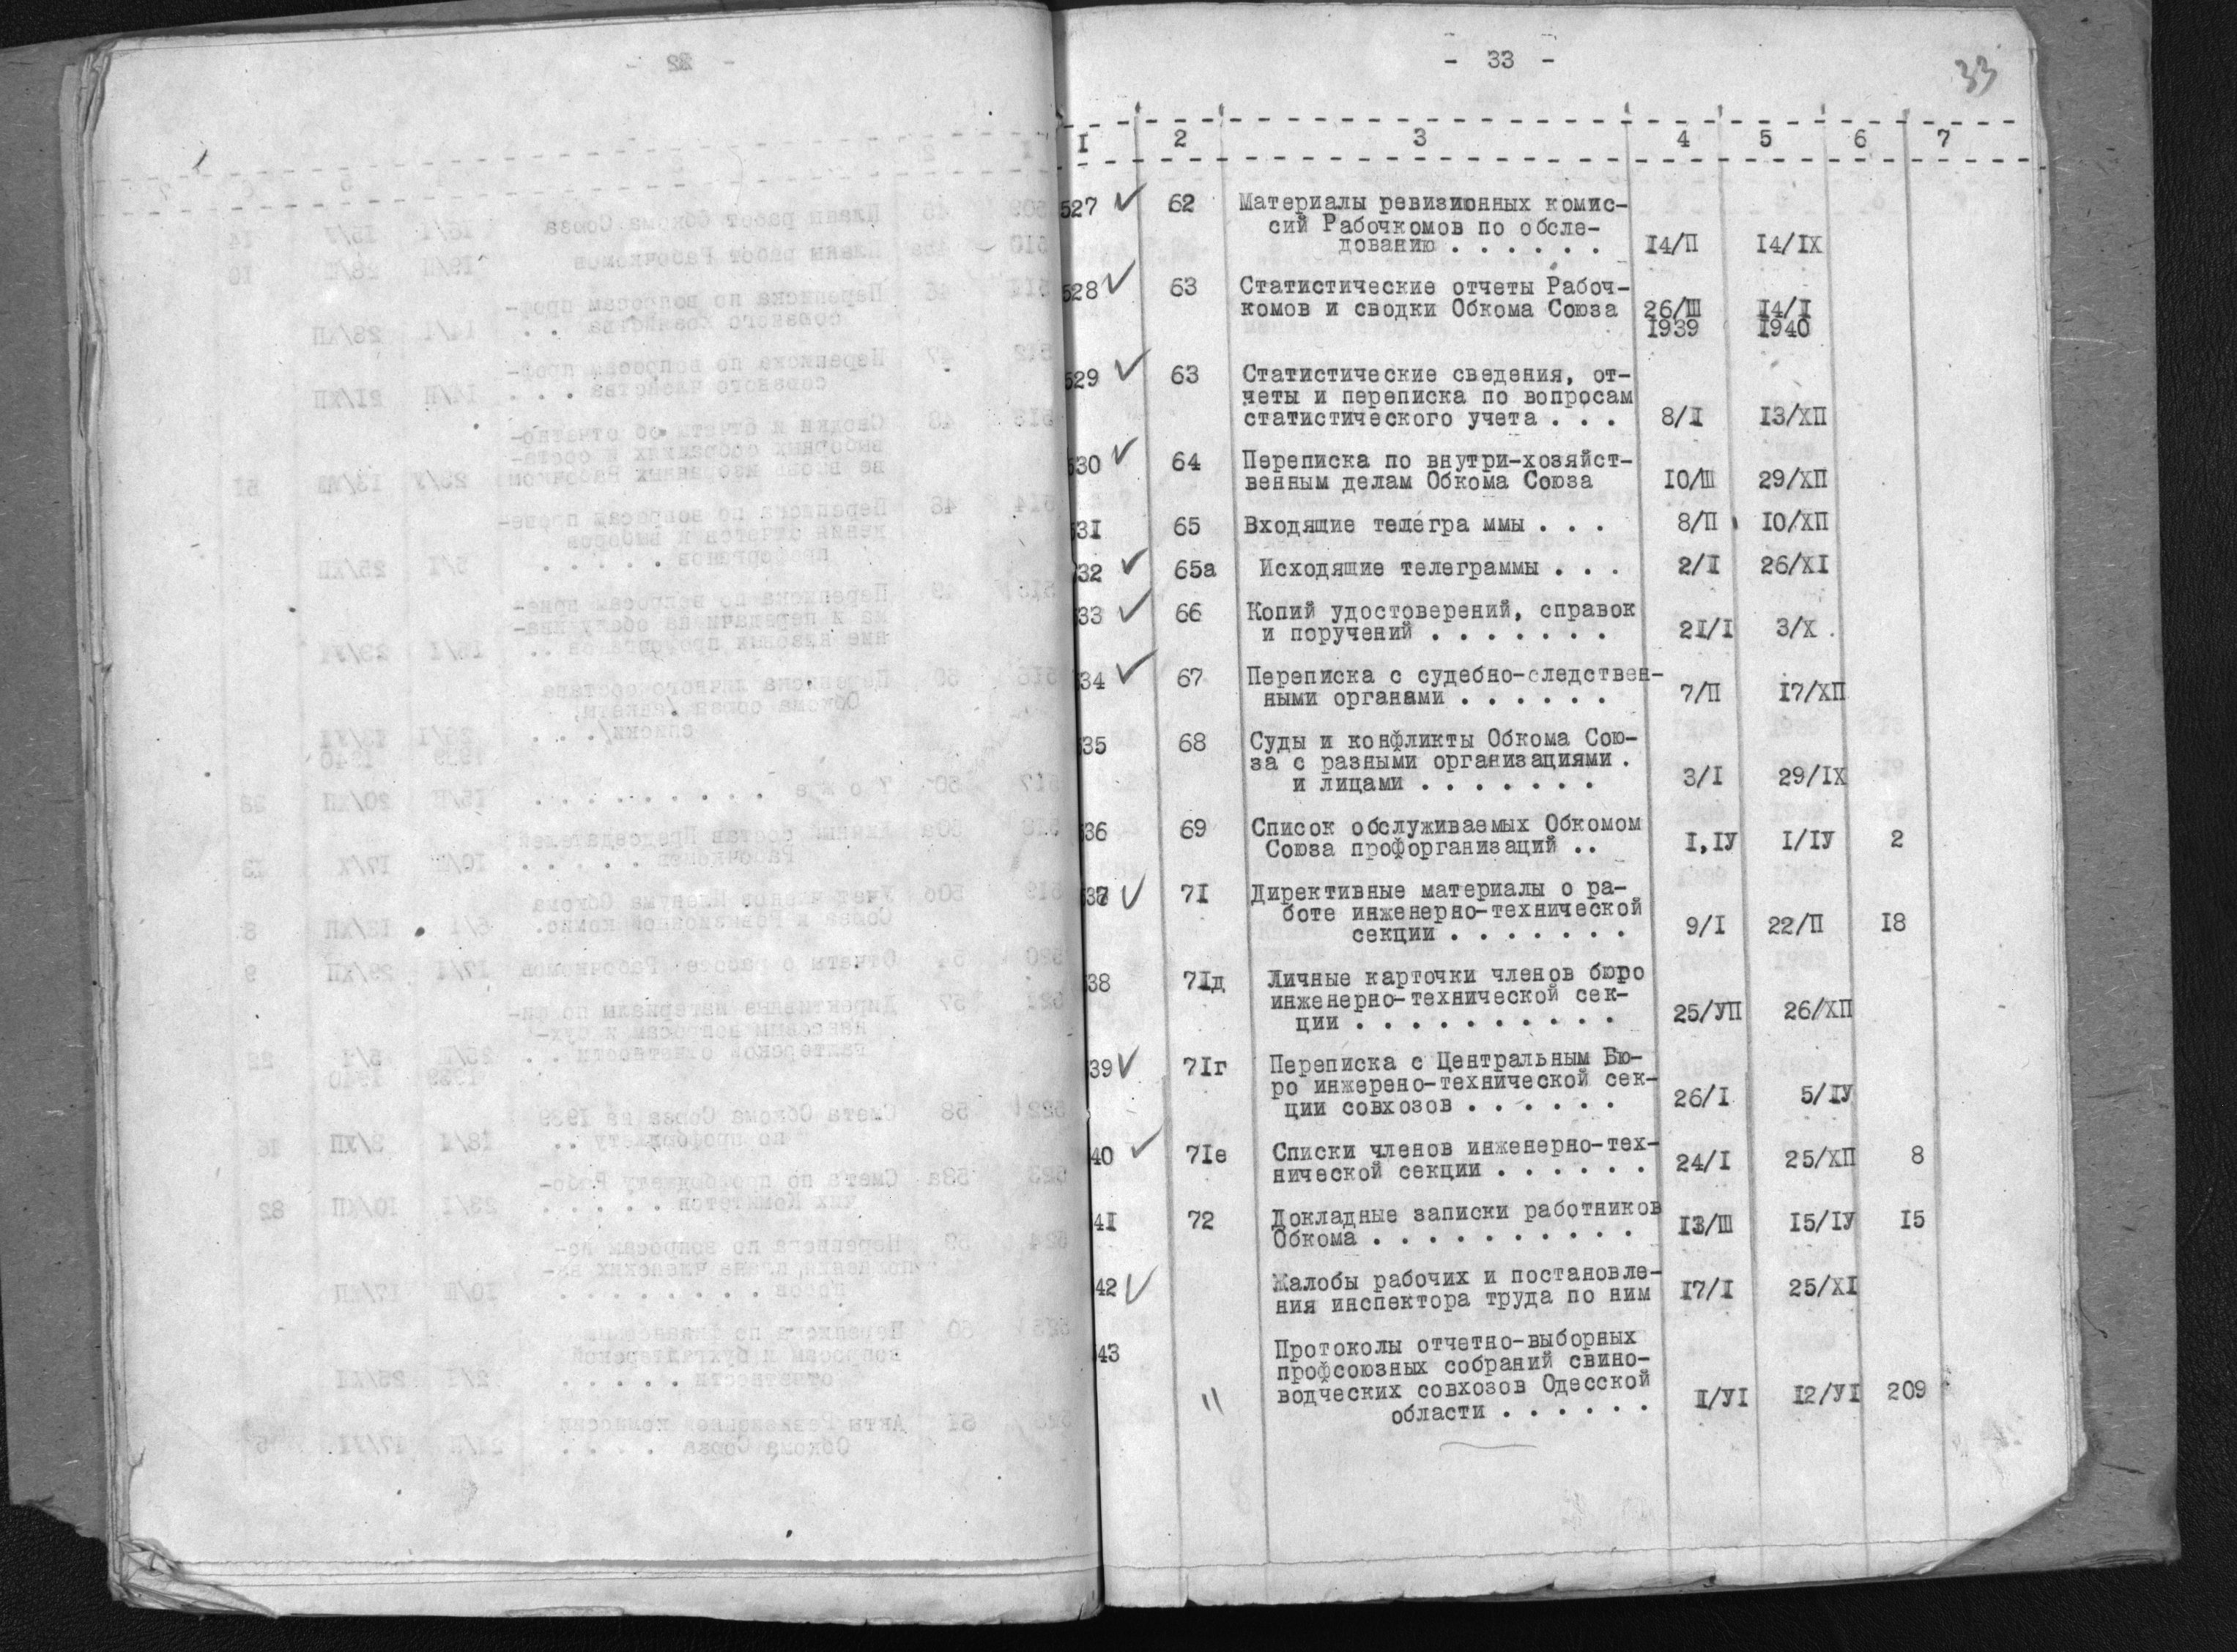 - 33 -
33
I 2 3 4 5 6 7
527 ✓ 62 Материалы ревизионных комис-
сий Рабочкомов по обсле-
дованию . . . . . . 14/П 14/IX
528 ✓ 63 Статистические отчеты Рабоч-
комов и сводки Обкома Союза 26/Ш 14/I
1939 1940
529 ✓ 63 Статистические сведения, от-
четы и переписка по вопросам
статистического учета . . . 8/I 13/ХП
530 ✓ 64 Переписка по внутри-хозяйст-
венным делам Обкома Союза 10/Ш 29/ХП
531 65 Входящие телегра ммы . . . 8/П 10/ХП
32 ✓ 65а Исходящие телеграммы . . . 2/I 26/XI
33 ✓ 66 Копий удостоверений, справок
и поручений . . . . . . . 21/I 3/X
34 ✓ 67 Переписка с судебно-следствен-
ными органами . . . . . . 7/П 17/ХП
35 68 Суды и конфликты Обкома Сою-
за с разными организациями .
и лицами . . . . . . . 3/I 29/IX
36 69 Список обслуживаемых Обкомом
Союза профорганизаций .. I,IУ I/IУ 2
537 ✓ 7I Директивные материалы о ра-
боте инженерно-технической
секции . . . . . . . 9/I 22/П 18
38 7Iд Личные карточки членов бюро
инженерно-технической сек-
ции . . . . . . . . . . 25/УП 26/ХП
39 ✓ 7Iг Переписка с Центральным Бю-
ро инжерено-технической сек-
ции совхозов . . . . . . 26/I 5/IУ
40 ✓ 7Iе Списки членов инженерно-тех-
нической секции . . . . . . 24/I 25/ХП 8
41 72 Докладные записки работников
Обкома . . . . . . . . . . 13/Ш 15/IУ 15
42 ✓ Жалобы рабочих и постановле-
ния инспектора труда по ним 17/I 25/XI
43 Протоколы отчетно-выборных
профсоюзных собраний свино-
водческих совхозов Одесской
" области . . . . . . II/УI I2/УI 209